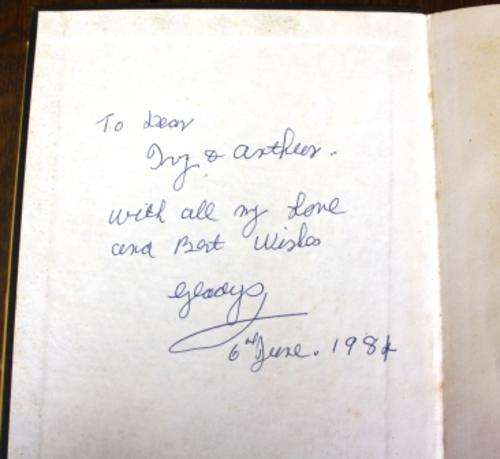 To Dear
Ivy & Arthur.
with all my Love
and Best Wishes
Gladys
6th June. 1984